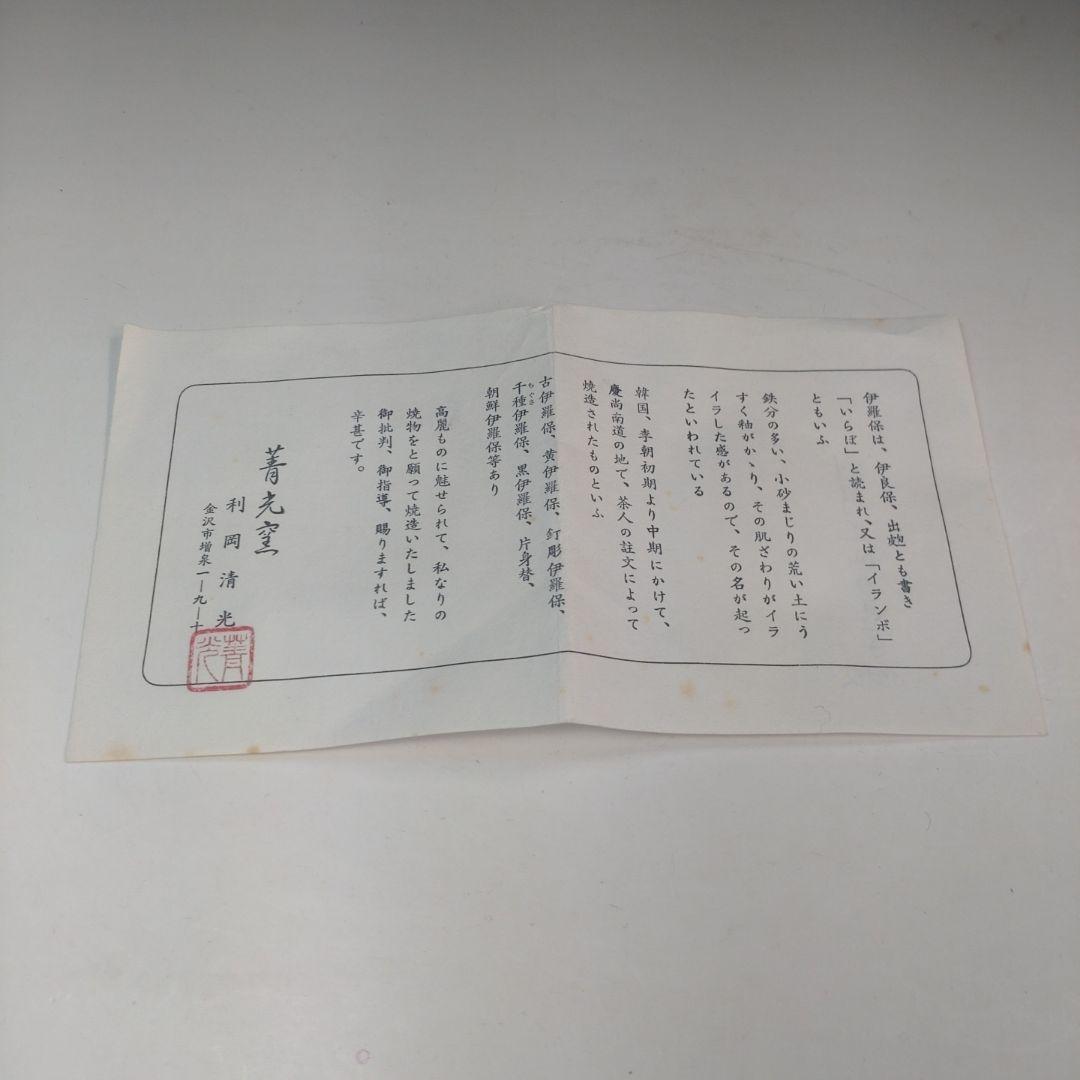 伊羅保は、伊良保、出皰とも書き
「いらぼ」と読まれ、又は「イランボ」
ともいふ
鉄分の多い、小砂まじりの荒い土にう
すく釉がかゝり、その肌ざわりがイラ
イラした感があるので、その名が起っ
たといわれている
韓国、李朝初期より中期にかけて、
慶尚南道の地で、茶人の註文によって
焼造されたものといふ
古伊羅保、黄伊羅保、釘彫伊羅保、
千種伊羅保、黒伊羅保、片身替、
ちぐさ
朝鮮伊羅保等あり
高麗ものに魅せられて、私なりの
焼物をと願って焼造いたしました
御批判、御指導、賜りますれば、
辛甚です。
菁光窯
利岡清光
金沢市増泉一ー九ー十
菁光